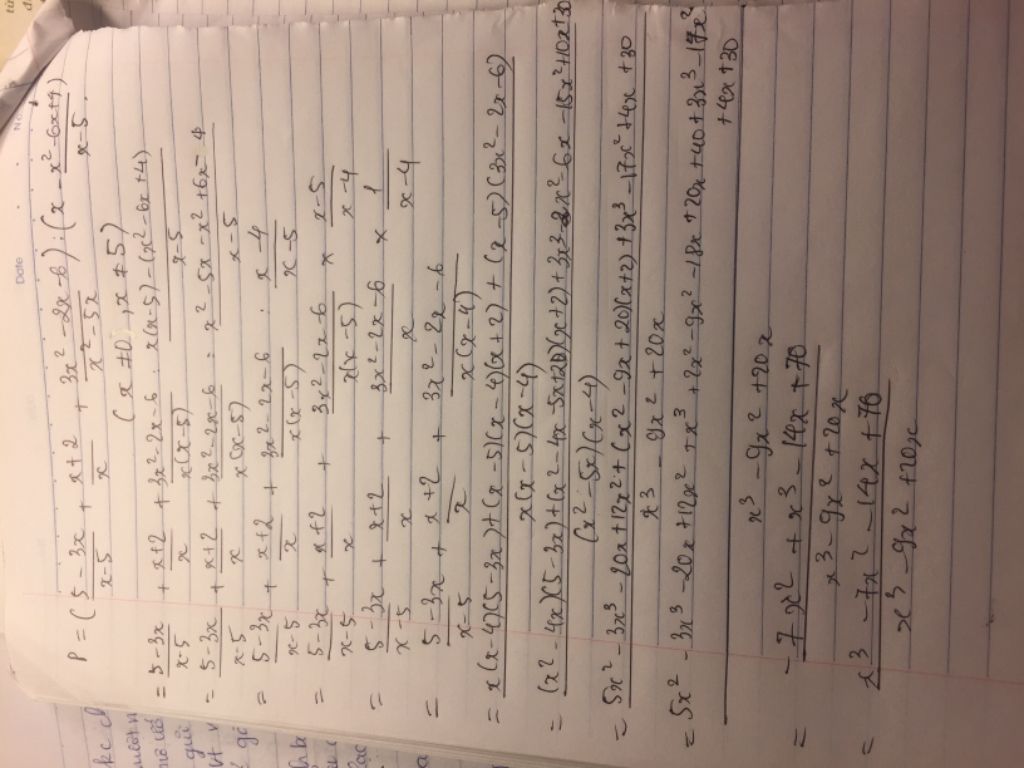 Date
P = (5 - 3x / x-5 + x+2 / x + 3x² - 2x - 6 / x² - 5x) : (x - x² - 6x + 4 / x - 5)
(x ≠ 0, x ≠ 5)
= 5 - 3x / x-5 + x+2 / x + 3x² - 2x - 6 / x(x-5) : x(x-5) - (x² - 6x + 4) / x-5
= 5 - 3x / x-5 + x+2 / x + 3x² - 2x - 6 / x(x-5) : x² - 5x - x² + 6x - 4 / x-5
= 5 - 3x / x-5 + x+2 / x + 3x² - 2x - 6 / x(x-5) : x - 4 / x - 5
= 5 - 3x / x-5 + x+2 / x + 3x² - 2x - 6 / x(x-5) × x-5 / x-4
= 5 - 3x / x-5 + x+2 / x + 3x² - 2x - 6 / x × 1 / x-4
= 5 - 3x / x-5 + x+2 / x + 3x² - 2x - 6 / x(x-4)
= x(x-4)(5-3x) + (x-5)(x-4)(x+2) + (x-5)(3x² - 2x - 6) / x(x-5)(x-4)
= (x² - 4x)(5-3x) + (x² - 4x - 5x + 20)(x+2) + 3x³ - 2x² - 6x - 15x² + 10x + 30 / (x² - 5x)(x-4)
= 5x² - 3x³ - 20x + 12x² + (x² - 9x + 20)(x+2) + 3x³ - 17x² + 4x + 30 / x³ - 9x² + 20x
= 5x² - 3x³ - 20x + 12x² + x³ + 2x² - 9x² - 18x + 20x + 40 + 3x³ - 17x² + 4x + 30 / x³ - 9x² + 20x
= -7x² + x³ - 14x + 70 / x³ - 9x² + 20x
= x³ - 7x² - 14x + 70 / x³ - 9x² + 20x